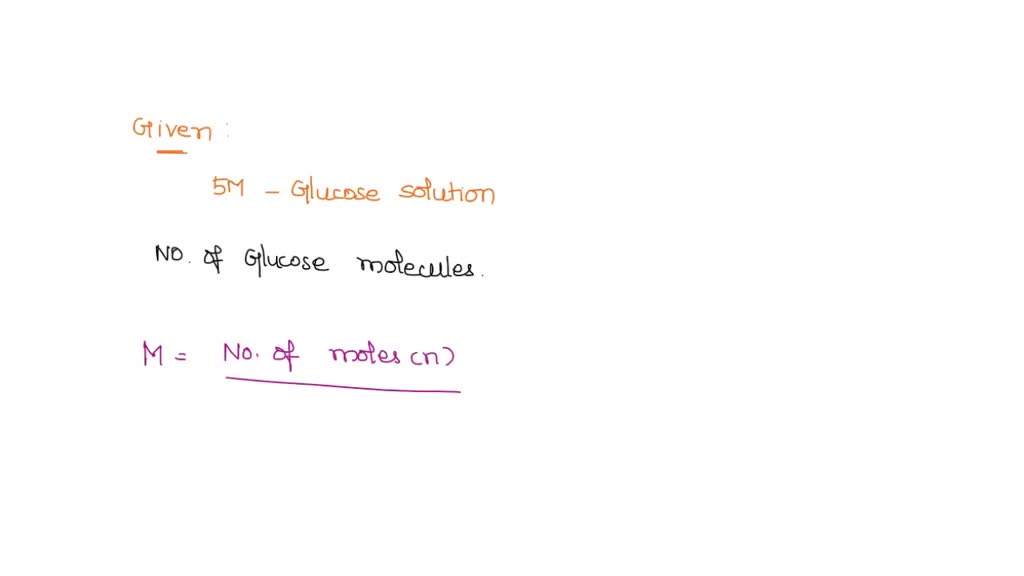 Given :
5M - Glucose solution
No. of Glucose molecules.
M = No. of moles (n)